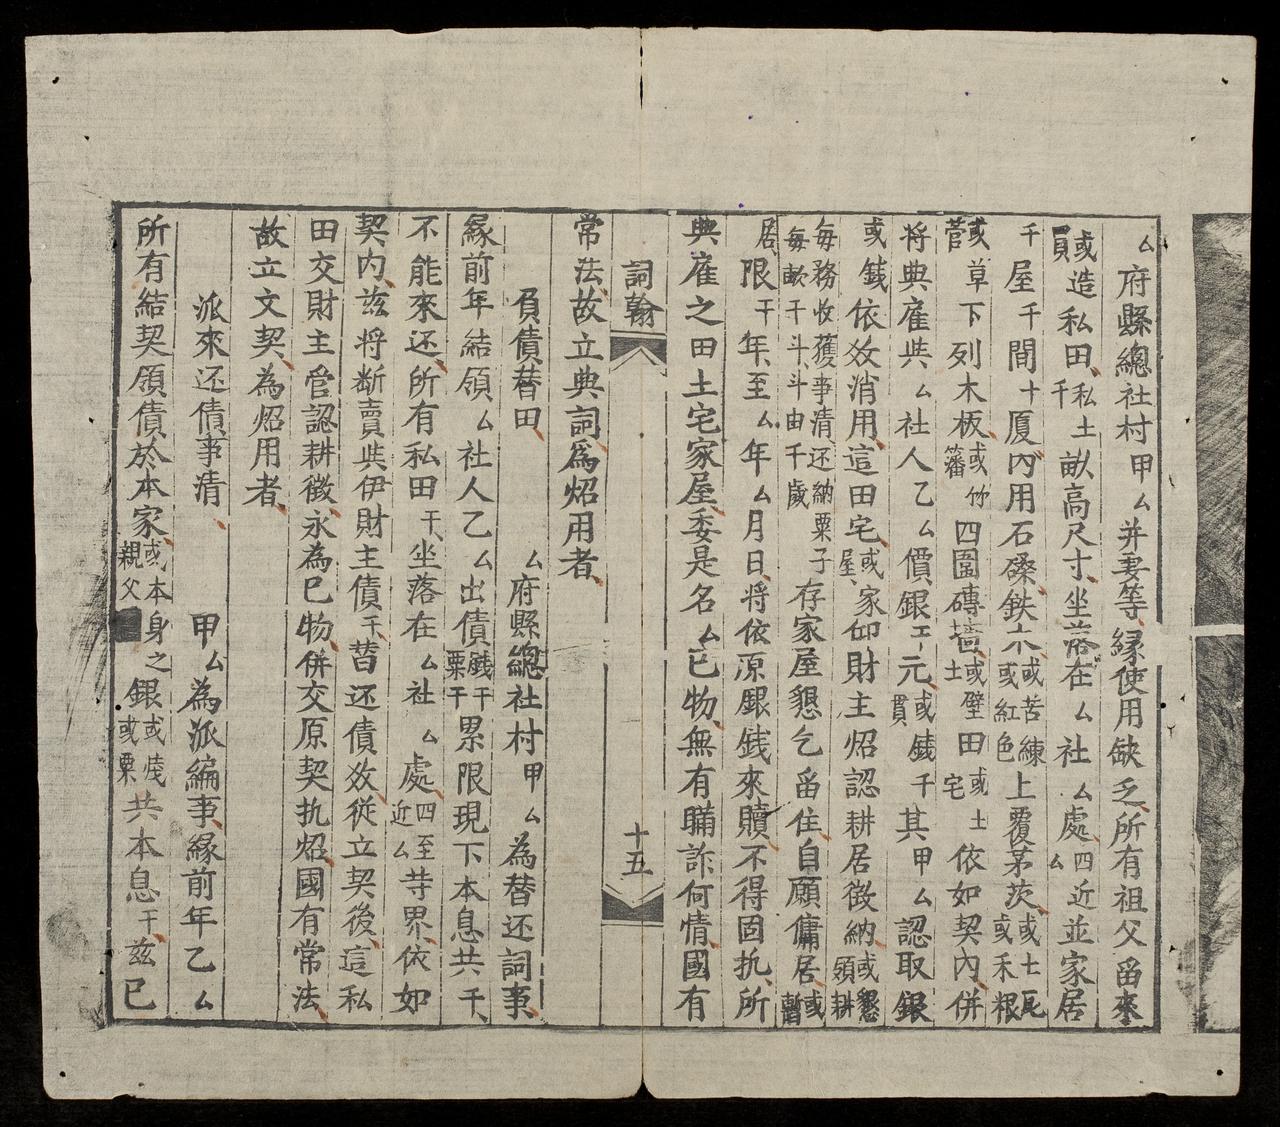 厶府縣總社村甲厶并妻等緣使用缺乏所有祖父畱來
或造私田私土畝高尺寸坐落在厶社厶處四近並家居
員千厶
千屋千間十厦內用石磉鉄木或苦練上覆茅茨或士瓦
或紅色或禾根
或草下列木板或竹四圍磚墻或壁田或土依如契內併
菅籓土宅
將典雇與厶社人乙厶價銀工元或銭千其甲厶認取銀
貫
或銭依效消用這田宅或家仰財主炤認耕居徵納或懇
屋領耕
每務收獲事清还納粟子存家屋懇乞畱住自願傭居或
每畝千斗斗由千歲暫
居限干年至厶年厶月日將依原銀銭來贖不得固执所
典雇之田土宅家屋委是名厶已物無有瞞詐何情國有
詞翰 十五
常法故立典詞為炤用者
負債替田 厶府縣總社村甲厶為替还詞事
緣前年結領厶社人乙厶出債銭千累限現下本息共千
粟干
不能來还所有私田干坐落在厶社厶處四至等界依如
近厶
契内茲將断賣與伊財主債千替还債效從立契後這私
田交財主管認耕徵永為已物併交原契执炤國有常法
故立文契為炤用者
派來还債事清 甲厶為派編事緣前年乙厶
所有結契領債於本家或本身之銀或銭共本息干茲已
親父或粟